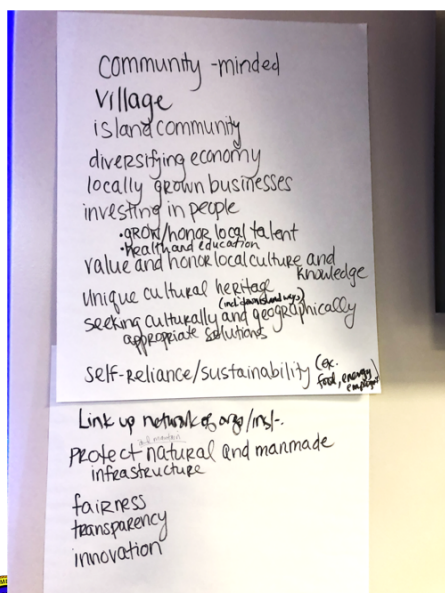 community-minded
village
island community
diversifying economy
locally grown businesses
investing in people
•grow/honor local talent
•health and education
value and honor local culture and
knowledge
unique cultural heritage
seeking culturally and geographically
appropriate solutions
self-reliance/sustainability (ex.
food, energy
Link up network of orgs/inst.
protect natural and manmade
infrastructure
fairness
transparency
innovation